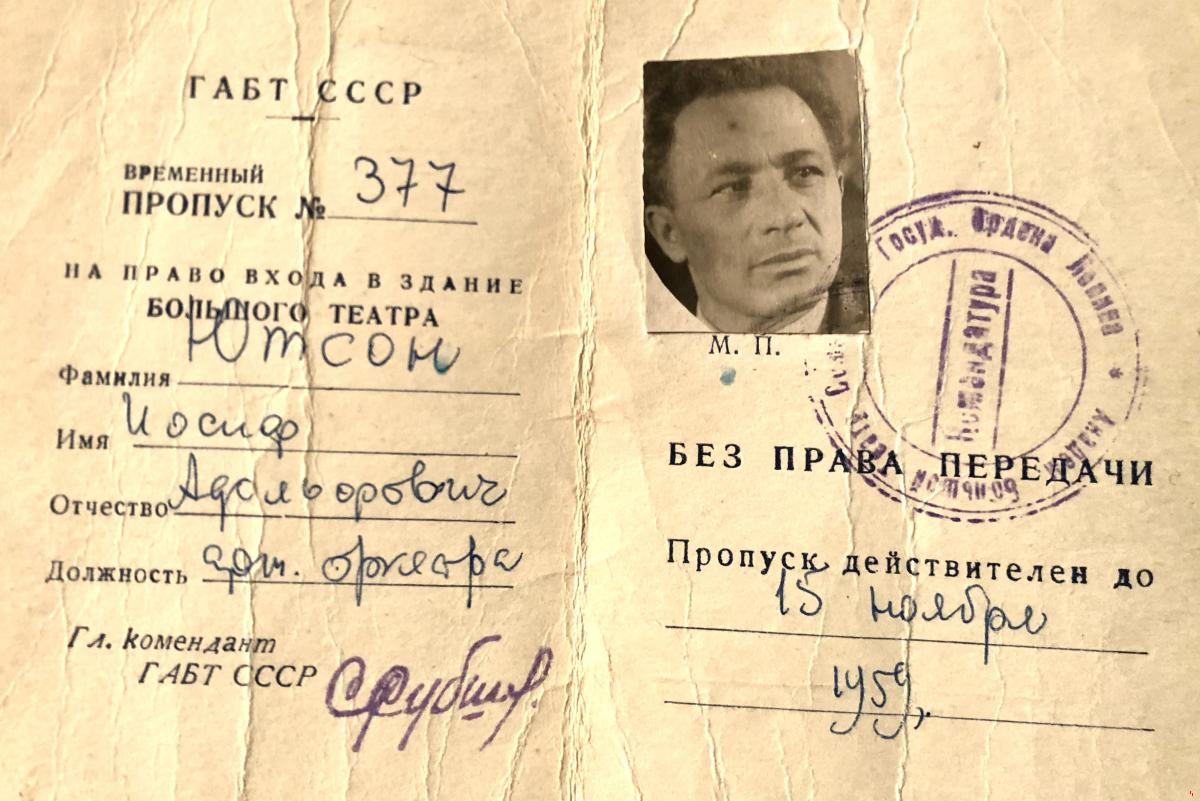 ГАБТ СССР
ВРЕМЕННЫЙ
ПРОПУСК № 377
НА ПРАВО ВХОДА В ЗДАНИЕ
БОЛЬШОГО ТЕАТРА
Фамилия Ютсон
Имя Иосиф
Отчество Адольфович
Должность арт. оркестра
Гл. комендант
ГАБТ СССР
М. П.
Госуд. Ордена Ленина
Комендатура
БЕЗ ПРАВА ПЕРЕДАЧИ
Пропуск действителен до
15 ноября
1959